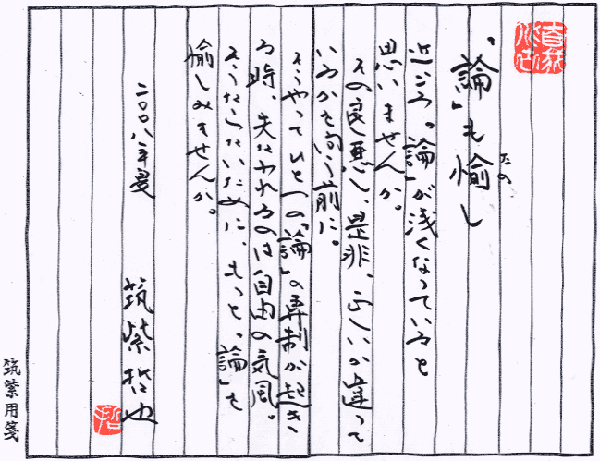 「論」も愉し
たの
近ごろ「論」が浅くなっていると
思いませんか。
その良し悪し、是非、正しいか違って
いるかを問う前に。
そうやってひとつの「論」の専制が起き
る時、失なわれるのは自由の気風。
そうならないために、もっと「論」を
愉しみませんか。
二〇〇八年夏
筑紫哲也
哲
筑紫用箋